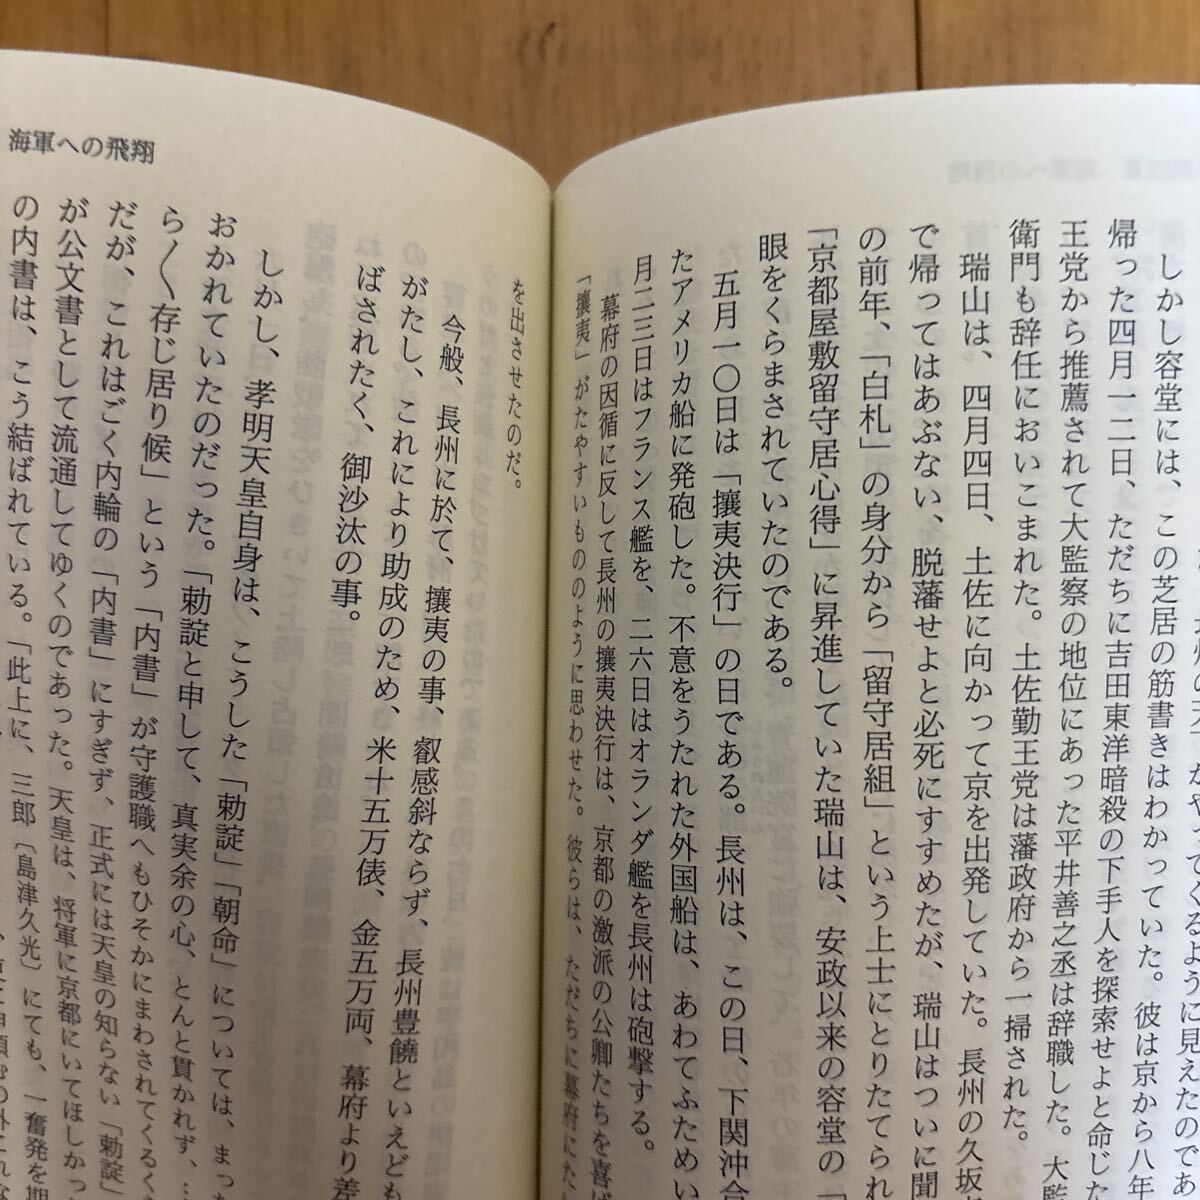 しかし容堂には、この芝居の筋書きはわかっていた。彼は京から八年
帰った四月一二日、ただちに吉田東洋暗殺の下手人を探索せよと命じた
王党から推薦されて大監察の地位にあった平井善之丞は辞職した。大監
衛門も辞任においこまれた。土佐勤王党は藩政府から一掃された。
瑞山は、四月四日、土佐に向かって京を出発していた。長州の久坂
で帰ってはあぶない、脱藩せよと必死にすすめたが、瑞山はついに聞
の前年、「白札」の身分から「留守居組」という上士にとりたてられ
「京都屋敷留守居心得」に昇進していた瑞山は、安政以来の容堂の「
眼をくらまされていたのである。
五月一〇日は「攘夷決行」の日である。長州は、この日、下関沖合
たアメリカ船に発砲した。不意をうたれた外国船は、あわてふためい
月二三日はフランス艦を、二六日はオランダ艦を長州は砲撃する。
幕府の因循に反して長州の攘夷決行は、京都の激派の公卿たちを喜ば
「攘夷」がたやすいもののように思わせた。彼らは、ただちに幕府にた
海軍への飛翔
を出させたのだ。
今般、長州に於て、攘夷の事、叡感斜ならず、長州豊饒といえども
がたし、これにより助成のため、米十五万俵、金五万両、幕府より差
ばされたく、御沙汰の事。
しかし、孝明天皇自身は、こうした「勅諚」「朝命」については、まっ
おかれていたのだった。「勅諚と申して、真実余の心、とんと貫かれず、…
らく存じ居り候」という「内書」が守護職へもひそかにまわされてくるく
だが、これはごく内輪の「内書」にすぎず、正式には天皇の知らない「勅諚」
が公文書として流通してゆくのであった。天皇は、将軍に京都にいてほしかっ
の内書は、こう結ばれている。「此上に、三郎〔島津久光〕にても、一奮発を期